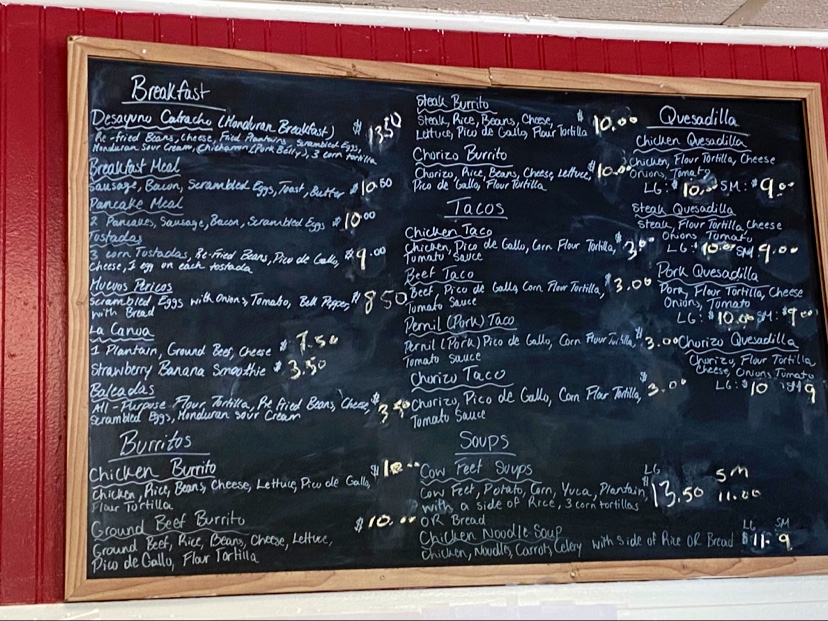 Breakfast
Desayuno Catracho (Honduran Breakfast) $13.50
Re-fried Beans, Cheese, Fried Plantains, Scrambled Eggs,
Honduran Sour Cream, Chicharron (Pork Belly), 3 corn tortilla
Breakfast Meal
Sausage, Bacon, Scrambled Eggs, Toast, Butter $10.50
Pancake Meal
2 Pancakes, Sausage, Bacon, Scrambled Eggs $10.00
Tostadas
3 corn Tostadas, Re-Fried Beans, Pico de Gallo, $9.00
cheese, 1 egg on each tostada
Huevos Pericos
Scrambled Eggs with Onions, Tomato, Bell Pepper, $8.50
with Bread
La Canoa
1 Plantain, Ground Beef, Cheese $7.50
Strawberry Banana Smoothie $3.50
Baleadas
All-Purpose Flour Tortilla, Re fried Beans, Cheese, $3.50
Scrambled Eggs, Honduran Sour Cream
Burritos
Chicken Burrito
Chicken, Rice, Beans, Cheese, Lettuce, Pico de Gallo, $10.00
Flour Tortilla
Ground Beef Burrito $10.00
Ground Beef, Rice, Beans, Cheese, Lettuce,
Pico de Gallo, Flour Tortilla
Steak Burrito
Steak, Rice, Beans, Cheese, $10.00
Lettuce, Pico de Gallo, Flour Tortilla
Chorizo Burrito
Chorizo, Rice, Beans, Cheese, Lettuce, $10.00
Pico de Gallo, Flour Tortilla
Tacos
Chicken Taco
Chicken, Pico de Gallo, Corn Flour Tortilla, $3.00
Tomato Sauce
Beef Taco
Beef, Pico de Gallo, Corn Flour Tortilla, $3.00
Tomato Sauce
Pernil (Pork) Taco
Pernil (Pork) Pico de Gallo, Corn Flour Tortilla, $3.00
Tomato Sauce
Chorizo Taco
Chorizo, Pico de Gallo, Corn Flour Tortilla, $3.00
Tomato Sauce
Soups
Cow Feet Soups LG SM
Cow Feet, Potato, Corn, Yuca, Plantain, $13.50 11.00
with a side of Rice, 3 corn tortillas
OR Bread
Chicken Noodle Soup LG SM
Chicken, Noodles, Carrots, Celery with side of Rice OR Bread $11.- 9
Quesadilla
Chicken Quesadilla
Chicken, Flour Tortilla, Cheese
Onions, Tomato
LG: $10.00 SM: $9.00
Steak Quesadilla
Steak, Flour Tortilla Cheese
Onions Tomato
LG: $10.00 SM 9.00
Pork Quesadilla
Pork, Flour Tortilla, Cheese
Onions, Tomato
LG: $10.00 SM: $9.00
Chorizo Quesadilla
Chorizo, Flour Tortilla
Cheese, Onions, Tomato
LG: $10 SM 9